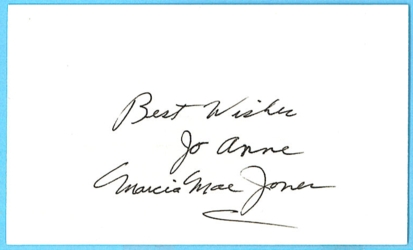 Best Wishes
Jo Anne
Marcia Mae Jones